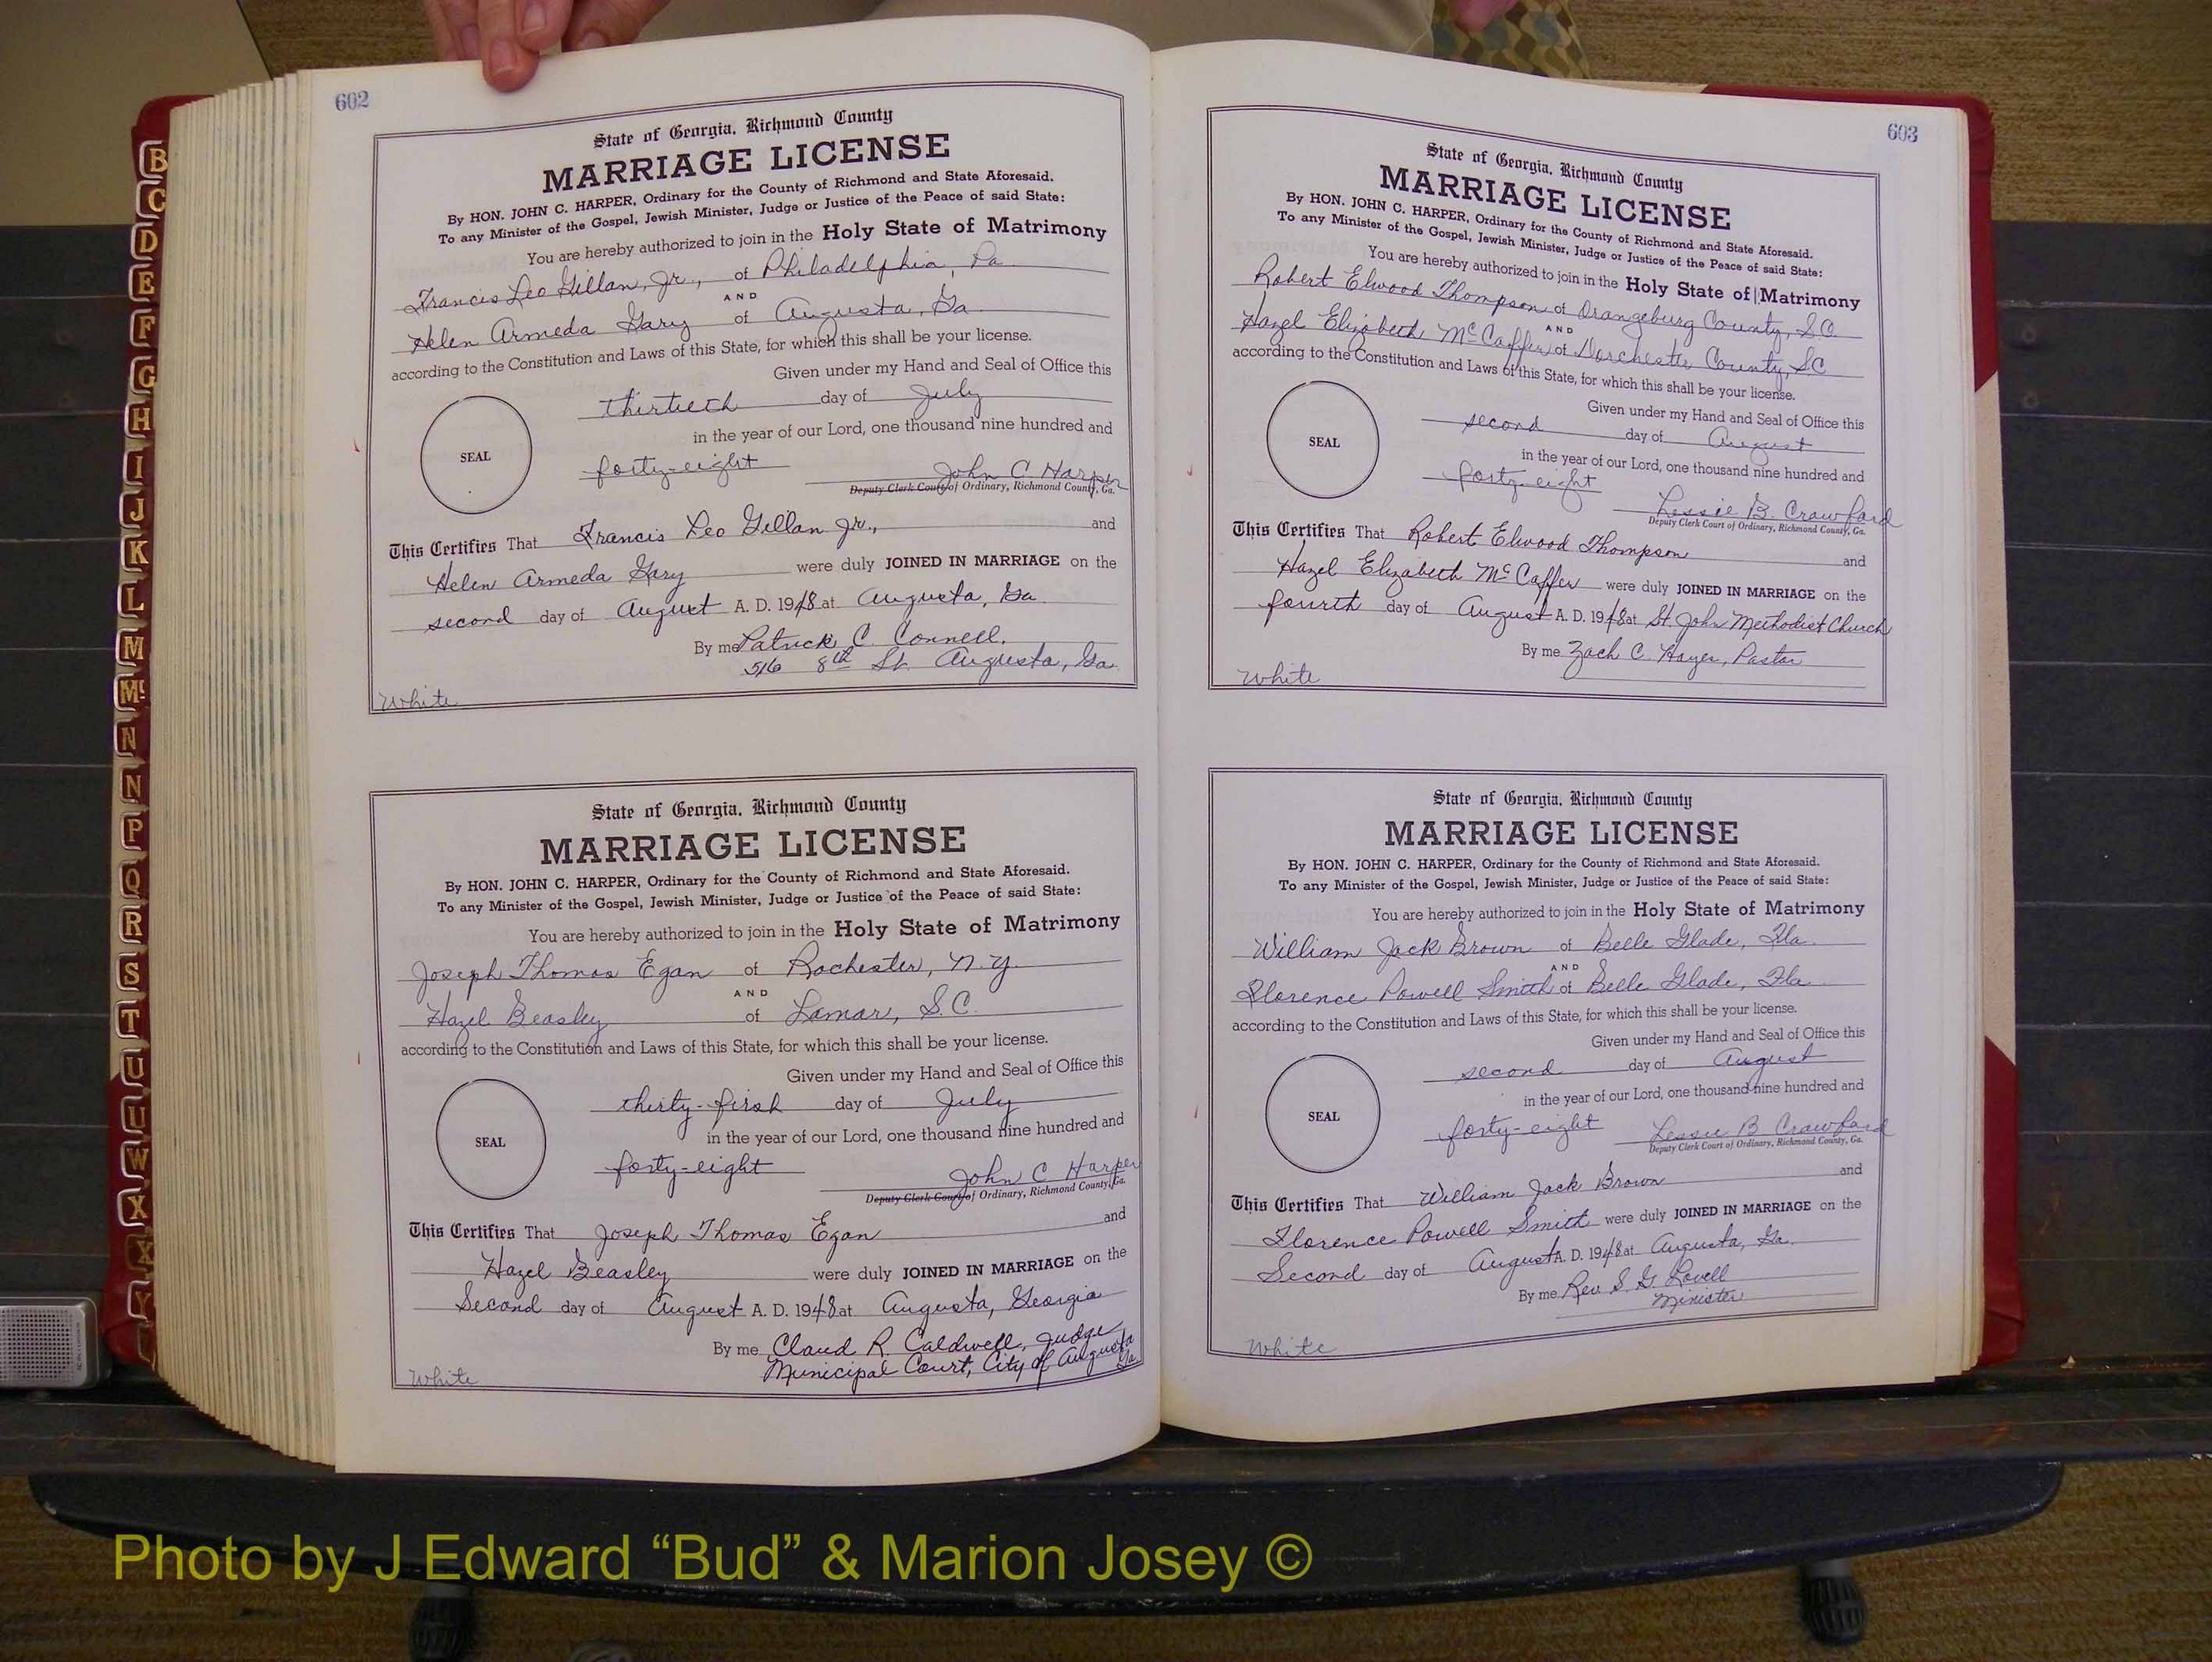 602
State of Georgia, Richmond County
MARRIAGE LICENSE
By HON. JOHN C. HARPER, Ordinary for the County of Richmond and State Aforesaid.
To any Minister of the Gospel, Jewish Minister, Judge or Justice of the Peace of said State:
You are hereby authorized to join in the Holy State of Matrimony
Francis Leo Gillan, Jr., of Philadelphia, Pa
AND
Helen Armeda Gary of Augusta, Ga
according to the Constitution and Laws of this State, for which this shall be your license.
Given under my Hand and Seal of Office this
thirtieth day of July
in the year of our Lord, one thousand nine hundred and
SEAL
forty-eight John C Harper
Deputy Clerk Court of Ordinary, Richmond County, Ga.
This Certifies That Francis Leo Gillan Jr., and
Helen Armeda Gary were duly JOINED IN MARRIAGE on the
second day of August A. D. 1948 at Augusta, Ga
By me Patrick C. Connell.
516 8th St. Augusta, Ga
White
State of Georgia, Richmond County
MARRIAGE LICENSE
By HON. JOHN C. HARPER, Ordinary for the County of Richmond and State Aforesaid.
To any Minister of the Gospel, Jewish Minister, Judge or Justice of the Peace of said State:
You are hereby authorized to join in the Holy State of Matrimony
Joseph Thomas Egan of Rochester, N.Y.
AND
Hazel Beasley of Lamar, S.C.
according to the Constitution and Laws of this State, for which this shall be your license.
Given under my Hand and Seal of Office this
thirty-first day of July
in the year of our Lord, one thousand nine hundred and
SEAL
forty-eight John C Harper
Deputy Clerk Court of Ordinary, Richmond County, Ga.
This Certifies That Joseph Thomas Egan and
Hazel Beasley were duly JOINED IN MARRIAGE on the
Second day of August A. D. 1948 at Augusta, Georgia
By me Claud R. Caldwell, Judge
Municipal Court, City of Augusta
Ga
White
603
State of Georgia, Richmond County
MARRIAGE LICENSE
By HON. JOHN C. HARPER, Ordinary for the County of Richmond and State Aforesaid.
To any Minister of the Gospel, Jewish Minister, Judge or Justice of the Peace of said State:
You are hereby authorized to join in the Holy State of Matrimony
Robert Elwood Thompson of Orangeburg County, S.C.
AND
Hazel Elizabeth McCaffer of Dorchester County, SC
according to the Constitution and Laws of this State, for which this shall be your license.
Given under my Hand and Seal of Office this
second day of August
in the year of our Lord, one thousand nine hundred and
SEAL
forty-eight Lessie B. Crawford
Deputy Clerk Court of Ordinary, Richmond County, Ga.
This Certifies That Robert Elwood Thompson and
Hazel Elizabeth McCaffer were duly JOINED IN MARRIAGE on the
fourth day of August A. D. 1948 at St. John Methodist Church
By me Zach C. Hayes, Pastor
White
State of Georgia, Richmond County
MARRIAGE LICENSE
By HON. JOHN C. HARPER, Ordinary for the County of Richmond and State Aforesaid.
To any Minister of the Gospel, Jewish Minister, Judge or Justice of the Peace of said State:
You are hereby authorized to join in the Holy State of Matrimony
William Jack Brown of Belle Glade, Fla.
AND
Florence Powell Smith of Belle Glade, Fla
according to the Constitution and Laws of this State, for which this shall be your license.
Given under my Hand and Seal of Office this
second day of August
in the year of our Lord, one thousand nine hundred and
SEAL
forty-eight Lessie B Crawford
Deputy Clerk Court of Ordinary, Richmond County, Ga.
This Certifies That William Jack Brown and
Florence Powell Smith were duly JOINED IN MARRIAGE on the
Second day of August A. D. 1948 at Augusta, Ga.
By me Rev S. G. Lovell
Minister
White
B
C
D
E
F
G
H
I
J
K
L
M
Mc
N
N
P
Q
R
S
T
U
U
W
X
X
Y
Photo by J Edward “Bud” & Marion Josey ©